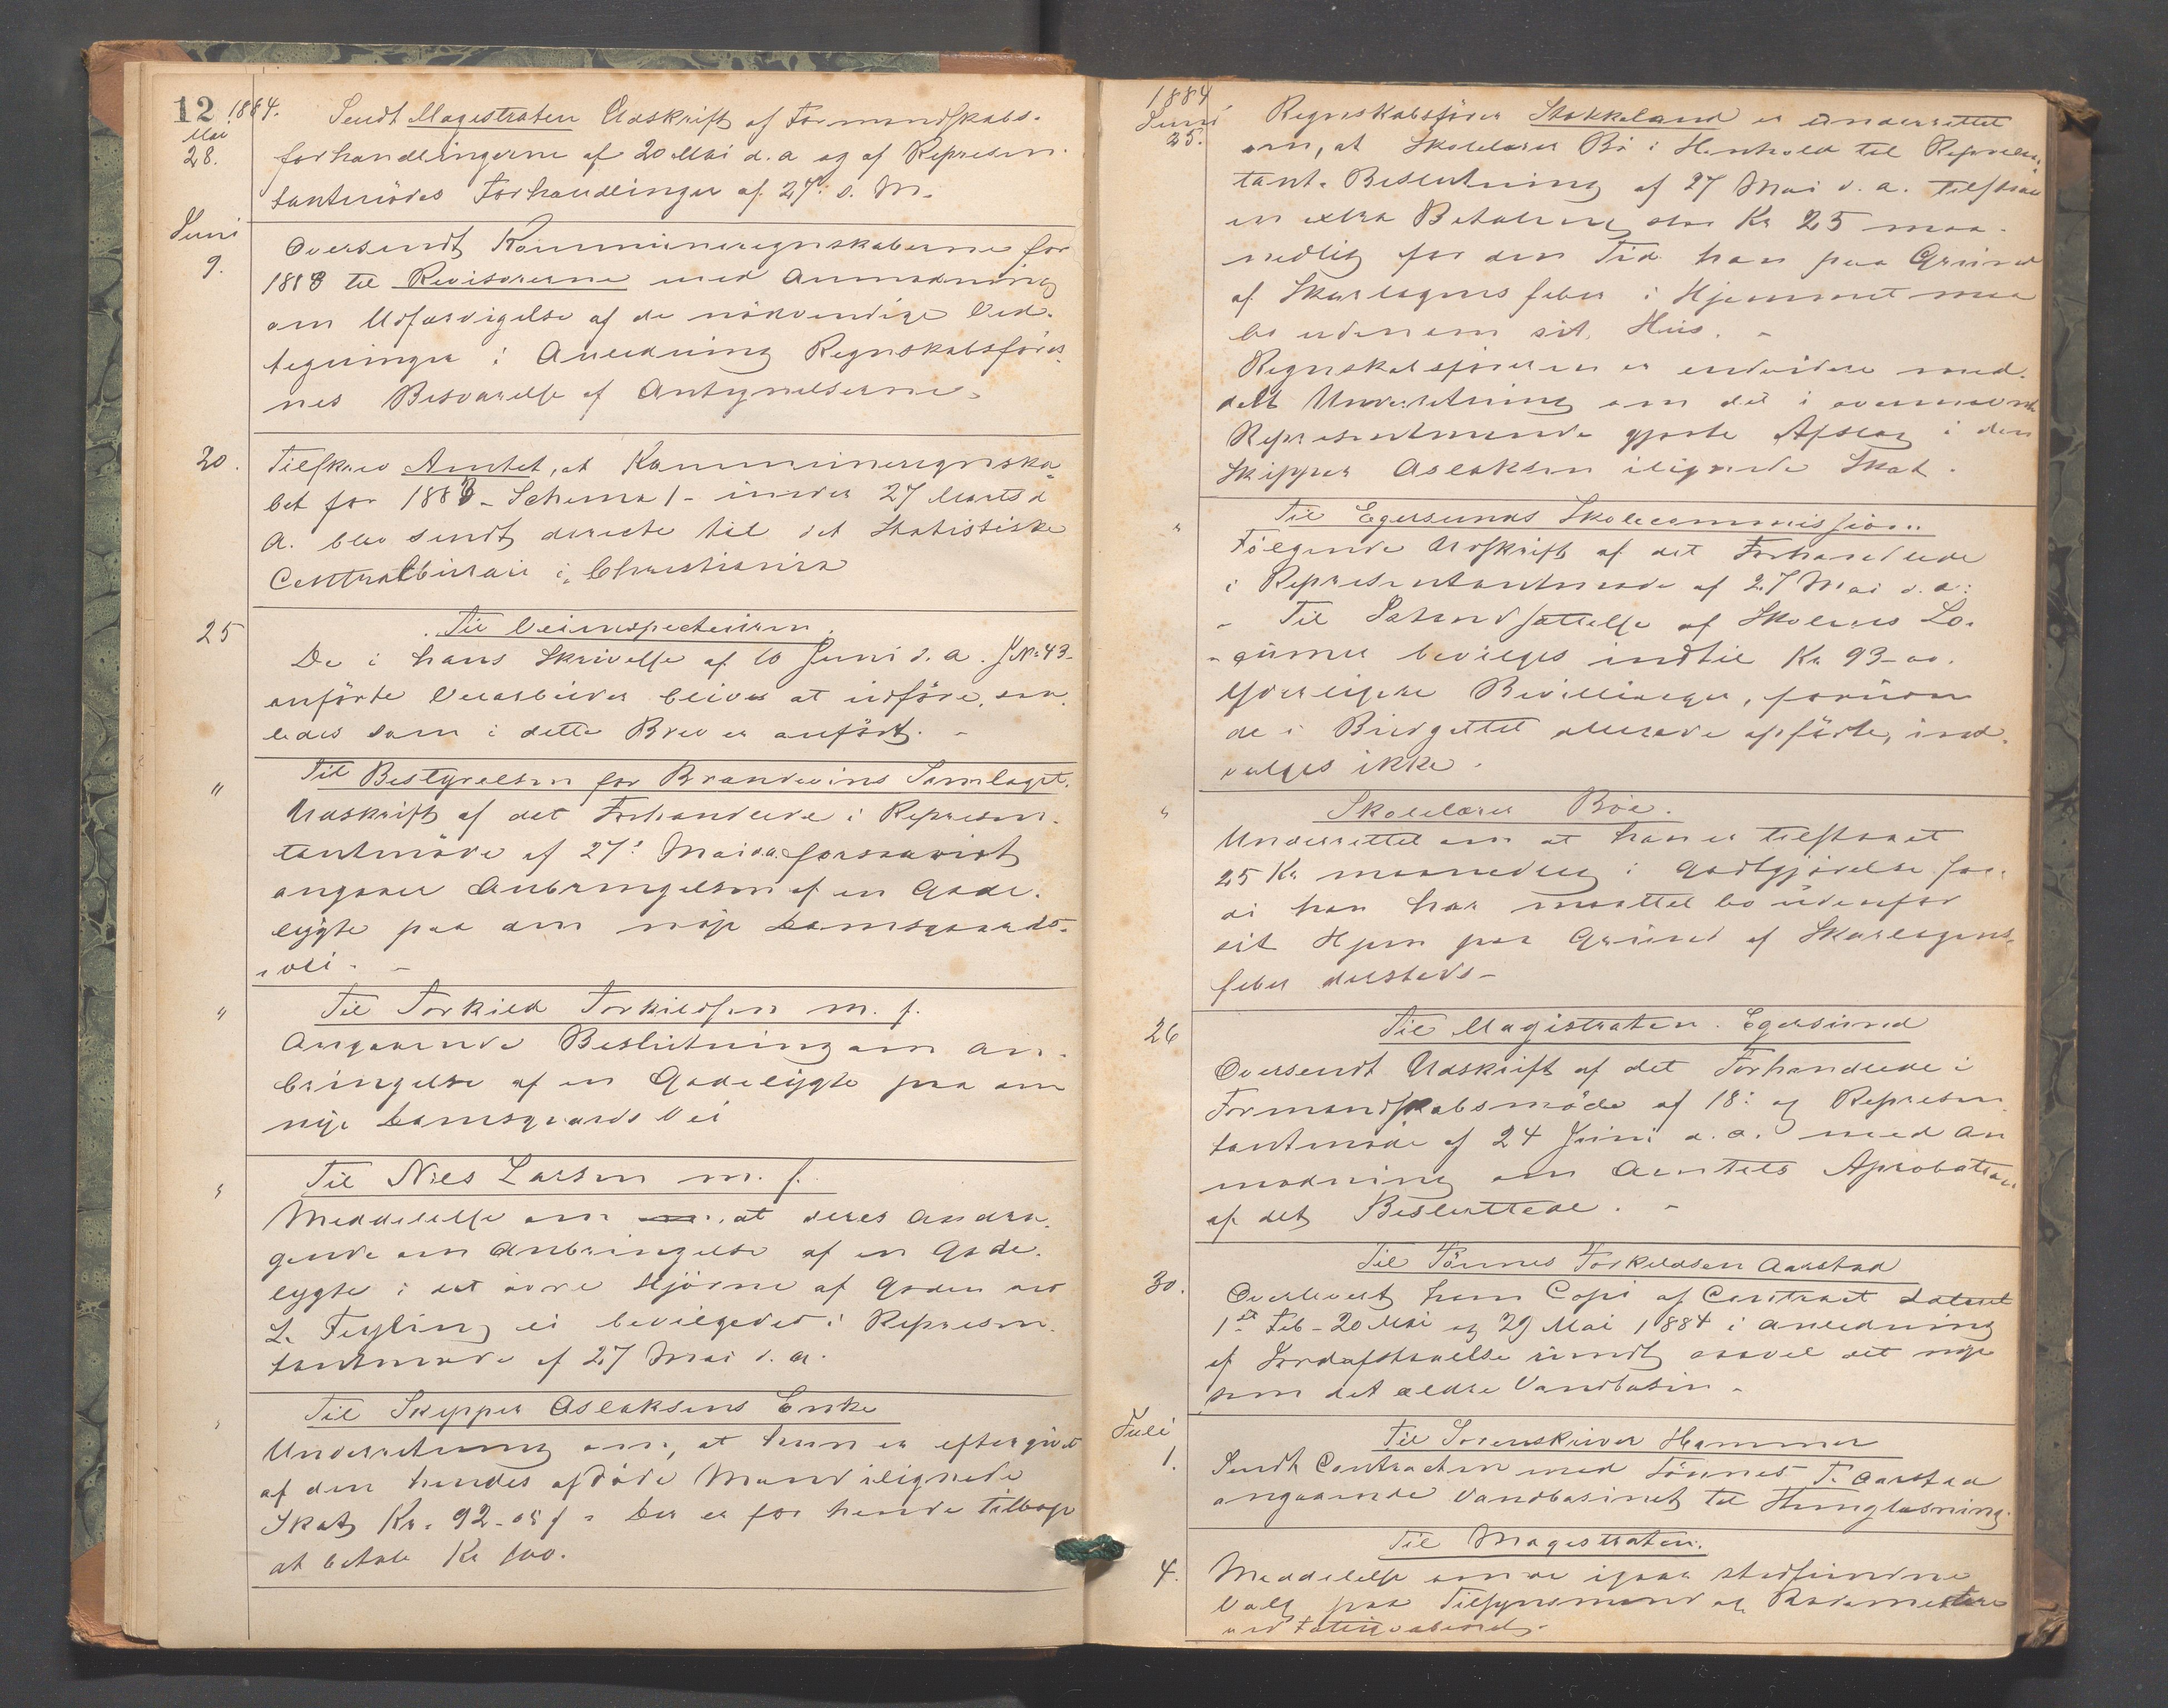 12 1884.
Mai
28.
Sendt Magistraten Udskrift af Formandskabs-
forhandlingerne af 20 Mai d.a og af Represen-
tantmödes Forhandlinger af 27: s. M.
Juni
9.
Oversendt Kommuneregnskaberne for
1883 til Revisorerne med Anmodning
om Udfærdigelse af de nödvendige Ved-
tegninger i Anledning Regnskabsföre-
nes Besvarelse af Antegnelserne.
20.
Tilskrev Amtet, at Kommuneregnska-
bet for 1883 - Schema 1 - under 27 Marts d
A. blev sendt directe til det Statistiske
Centralbureau i Christiania
25
Til Veiinspecteuren.
De i hans Skrivelse af 10 Juni d. a. J.No 43-
anförte Veiarbeider bliver at udföre, saa-
ledes som i dette Brev er anfört. -
"
Til Bestyrelsen for Brændevins Samlaget.
Udskrift af det Forhandlede i Represen-
tantmöde af 27: Mai d.a. forsaavidt
angaaer Anbringelsen af en Gade-
lygte paa den nye Damsgaards-
vei. -
"
Til Torkild Torkildsen m. f.
Angaaende Beslutning om An-
bringelse af en Gadelygte paa den
nye Damsgaards Vei
"
Til Niels Larsen m. f.
Meddelelse om at deres Andra-
gende om Anbringelse af en Gade-
lygte i det övre Hjörne af Gaden ved
L. Feyling ei bevilgedes i Represen-
tantmöde af 27 Mai d. a.
"
Til Skipper Aslaksens Enke
Underretning om, at hun er eftergivet
af den hendes afdöde Mand ilignede
Skat Kr. 92. Der er for hende Tilbage
at betale Kr 100.
1884
Juni
25.
Regnskabsförer Stokkeland er underrettet
om, at Skolelærer Bö i Henhold til Represen-
tant. Beslutning af 27 Mai d. a. tilstaaes
en extra Betaling stor Kr 25 maa-
nedlig for den Tid han paa Grund
af Skarlagensfeber i Hjemmet maa
bo udenom sit Hus. -
Regnskabsföreren er endvidere med-
delt Underretning om det i ovennævnte
Representantmöde gjorte Afslag i den
Skipper Aslaksen ilignede Skat.
"
Til Egersunds Skolecommission
Fölgende Udskrift af det Forhandlede
i Representantmöde af 27 Mai d. a:
- Til Istandsættelse af Skolens Lo-
kaler bevilges indtil Kr 93-00.
Yderligere Bevillinger, foruden
de i Budgettet allerede opförte, ind-
vilges ikke.
"
Skolelærer Böe.
Underrettet om at han er tilstaaet
25 Kr maanedlig i Godtgjörelse for-
di han har maattet bo udenfor
sit Hjem paa Grund af Skarlagens-
feber dersteds -
26
Til Magistraten. Egersund
Oversendt Udskrift af det Forhandlede i
Formandskabsmöde af 18: og Represen-
tantmöde af 24 Juni d. a. med An
modning om Amtets Aprobation
af det Besluttede. -
30.
Til Tönnes Torkildsen Aarstad
Overlevert ham Copi af Contract dateret
1ste Feb - 20 Mai og 29 Mai 1884 i Anledning
af Jordafstaaelse rundt saavel det nye
som det ældre Vandbasin -
Juli
1.
Til Sorenskriver Hammer
Sendt Contracten med Tönnes T. Aarstad
angaaende Vandbasinet til Thinglæsning.
4.
Til Magistraten.
Meddelelse om de igaar stedfundne
Valg paa Tilsynsmænd og Rodemestere
ved Fattigvæsenet. -